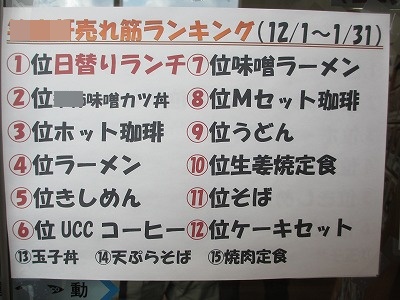 軒売れ筋ランキング(12/1～1/31)
①位日替りランチ
②位味噌カツ丼
③位ホット珈琲
④位ラーメン
⑤位きしめん
⑥位UCCコーヒー
⑦位味噌ラーメン
⑧位Mセット珈琲
⑨位うどん
⑩位生姜焼定食
⑪位そば
⑫位ケーキセット
⑬玉子丼 ⑭天ぷらそば ⑮焼肉定食
動